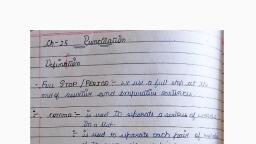 Ch-25 Punctuation
Definition
FULL STOP / PERIOD :- we use a full stop at the
end of assertive and imperative sentences
comma :- is used to separate a series of words
in a list.
:- is used to separate each pair of words